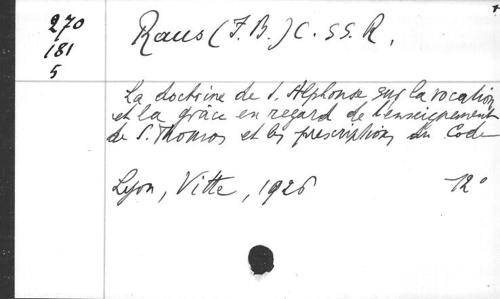 270
181
5
Raus (J. B.) C. SS. R.
La doctrine de S. Alphonse sur la vocation
et la grâce en regard de l'enseignement
de S. Thomas et les prescriptions du Code
Lyon, Vitte, 1926
12°